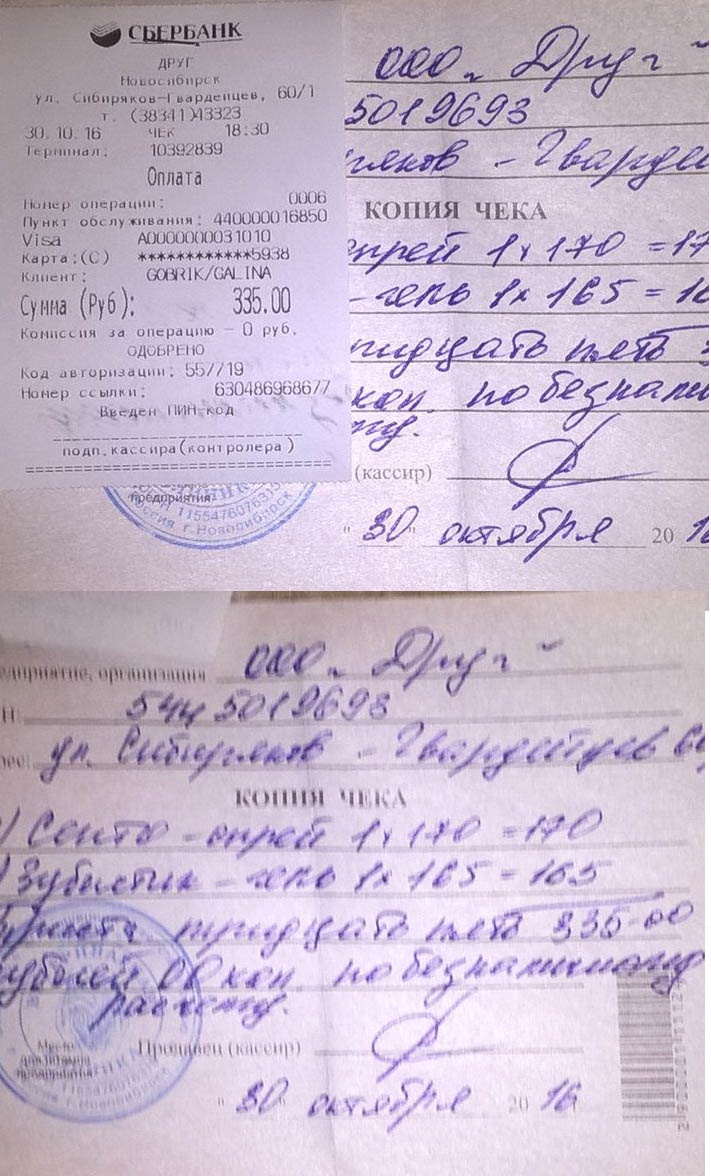 СБЕРБАНК
ДРУГ
Новосибирск
ул. Сибиряков-Гвардейцев, 60/1
т. (38341)43323
30.10.16 ЧЕК 18:30
Терминал: 10392839
Оплата
Номер операции: 0006
Пункт обслуживания: 440000016850
Visa A0000000031010
Карта:(C) ************5938
Клиент: GOBRIK/GALINA
Сумма (Руб): 335.00
Комиссия за операцию – 0 руб.
ОДОБРЕНО
Код авторизации: 557719
Номер ссылки: 630486968677
Введен ПИН-код
подп.кассира(контролера)
ооо „Друг"
5019693
КОПИЯ ЧЕКА
спрей 1х170 =17
-гель 1х165 = 16
тридцать пять
коп. по безналич
(кассир)
предприятия
г.Новосибирск
"30" октября 20 16
едприятие, организация ооо „Друг"
5019693
ул. Сибиряков - Гвардейцев
КОПИЯ ЧЕКА
-спрей 1х170 =170
-гель 1х165 = 165
тридцать пять 335-00
рублей 00 коп. по безналичному
расчету.
Место
для штампа
предприятия
Продавец (кассир)
"30" октября 20 16